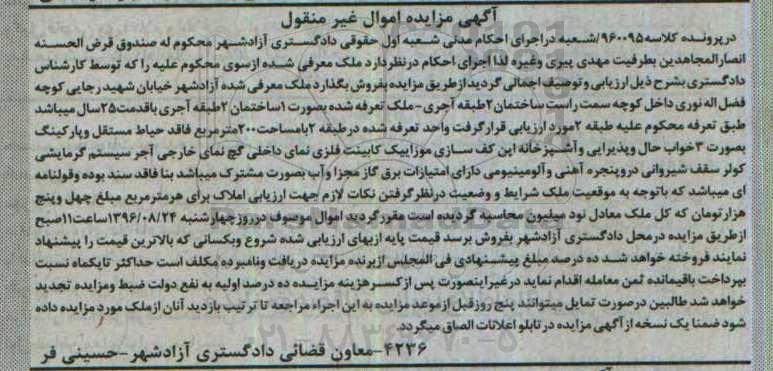 آگهی مزایده اموال غیر منقول
در پرونده کلاسه ۹۶۰۰۹۵/شعبه در اجرای احکام مدنی شعبه اول حقوقی دادگستری آزادشهر محکوم له صندوق قرض الحسنه
انصارالمجاهدین بطرفیت مهدی پیری وغیره لذا اجرای احکام در نظر دارد ملک معرفی شده ازسوی محکوم علیه را که توسط کارشناس
دادگستری بشرح ذیل ارزیابی و توصیف اجمالی گردید از طریق مزایده بفروش بگذارد ملک معرفی شده آزادشهر خیابان شهید رجایی کوچه
فضل اله نوری داخل کوچه سمت راست ساختمان ۲طبقه آجری-ملک تعرفه شده بصورت ۱ساختمان ۲طبقه آجری باقدمت ۲۵سال میباشد
طبق تعرفه محکوم علیه طبقه ۲مورد ارزیابی قرار گرفت واحد تعرفه شده در طبقه ۲بامساحت ۲۰۰مترمربع فاقد حیاط مستقل وپارکینگ
بصورت ۳خواب حال وپذیرایی و آشپزخانه اپن کف سازی موزاییک کابینت فلزی نمای داخلی گچ نمای خارجی آجر سیستم گرمایشی
کولر سقف شیروانی دروپنجره آهنی و آلومینیومی دارای امتیازات برق گاز مجزا و آب بصورت مشترک میباشد بنا فاقد سند بوده و قولنامه
ای میباشد که باتوجه به موقعیت ملک شرایط و وضعیت در نظر گرفتن نکات لازم جهت ارزیابی املاک برای هرمترمربع مبلغ چهل وپنج
هزار تومان که کل ملک معادل نود میلیون محاسبه گردیده است مقرر گردید اموال موصوف در روز چهارشنبه ۱۳۹۶/۰۸/۲۴ساعت۱۱صبح
ازطریق مزایده در محل دادگستری آزادشهر بفروش برسد قیمت پایه از بهای ارزیابی شده شروع وبکسانی که بالاترین قیمت را پیشنهاد
نمایند فروخته خواهد شد ده درصد مبلغ پیشنهادی فی المجلس ازبرنده مزایده دریافت ونامبرده مکلف است حداکثر تایکماه نسبت
بپرداخت باقیمانده ثمن معامله اقدام نماید در غیر اینصورت پس ازکسر هزینه مزایده ده درصد اولیه به نفع دولت ضبط ومزایده تجدید
خواهد شد طالبین درصورت تمایل میتوانند پنج روز قبل از موعد مزایده به این اجراء مراجعه تا ترتیب بازدید آنان از ملک مورد مزایده داده
شود ضمنا یک نسخه از آگهی مزایده در تابلو اعلانات الصاق میگردد.
۴۲۳۶-معاون قضائی دادگستری آزادشهر-حسینی فر